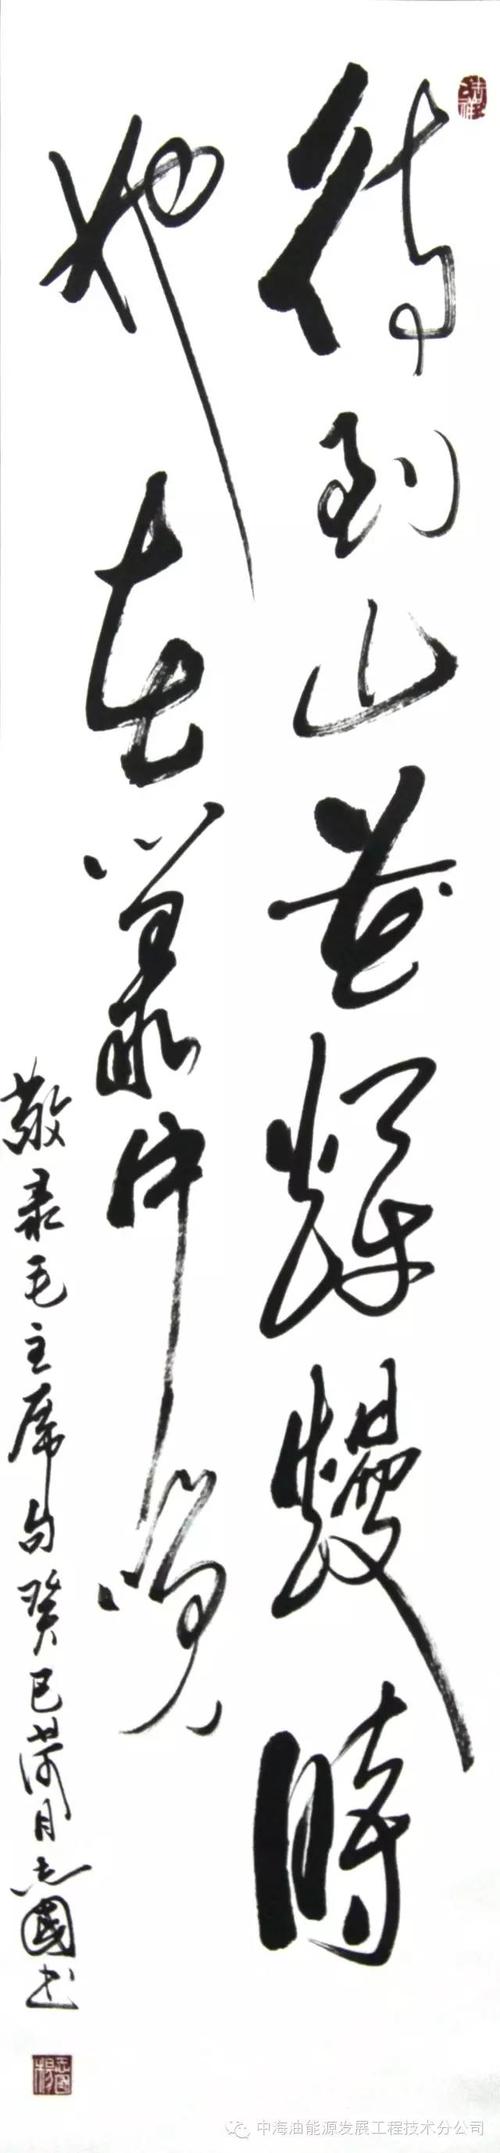 待到山花烂熳时
她在丛中笑
敬录毛主席句癸巳荷月志国书
中海油能源发展工程技术分公司